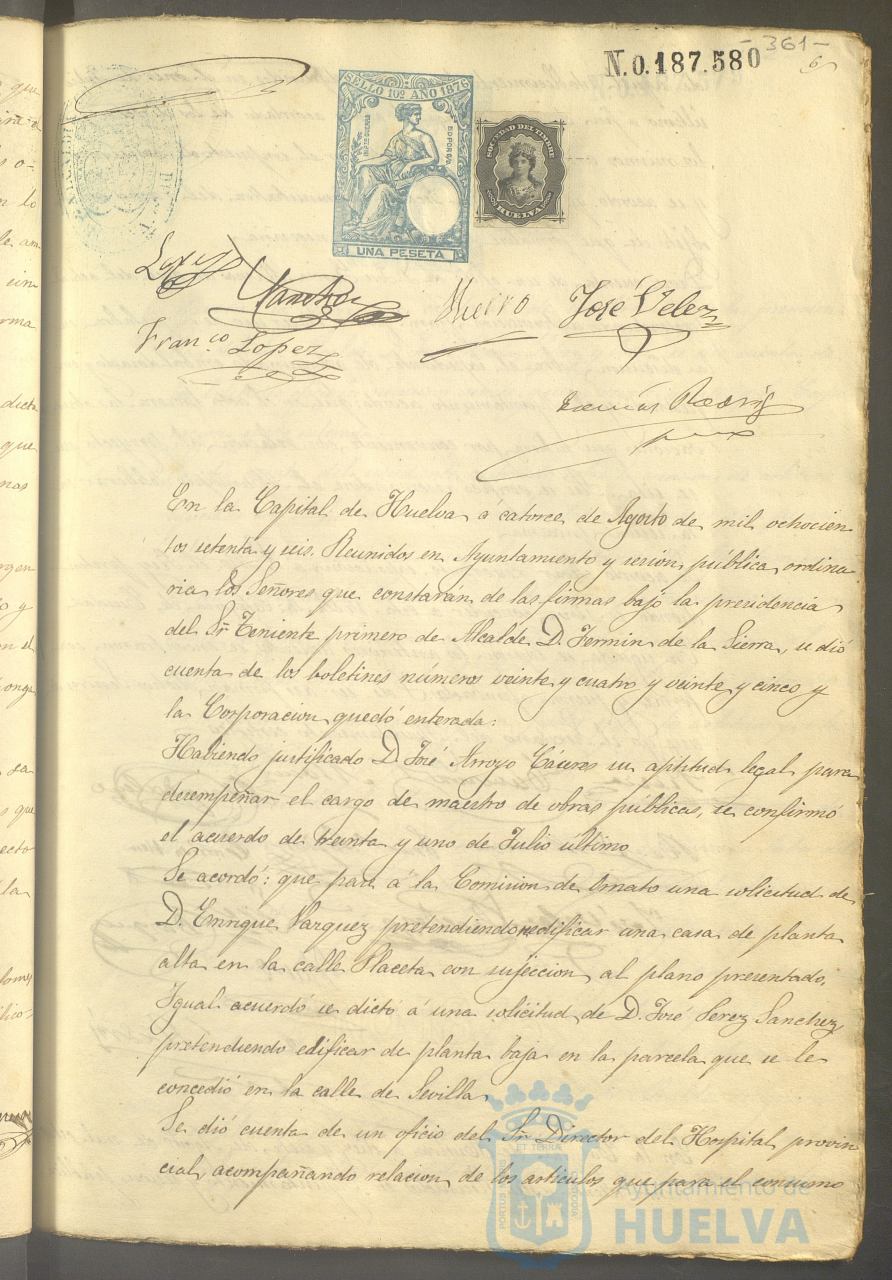 -361-
N.0.187.580
6
SELLO 10º AÑO 1876
UNA PESETA
SOCIEDAD DEL TIMBRE
HUELVA
Lopez
Sanchez
Hierro
José Velez
Franco Lopez
Tomás Rodrig
En la Capital de Huelva á catorce de Agosto de mil ochocien
tos setenta y seis. Reunidos en Ayuntamiento y sesion pública ordina
ria los Señores que constarán de las firmas bajo la presidencia
del Sr Teniente primero de Alcalde D. Fermin de la Sierra, se dió
cuenta de los boletines números veinte y cuatro y veinte y cinco y
la Corporacion quedó enterada:
Habiendo justificado D. José Arroyo Cáceres su aptitud legal para
desempeñar el cargo de maestro de obras públicas, se confirmó
el acuerdo de treinta y uno de Julio último
Se acordó: que pase á la Comision de Ornato una solicitud de
D. Enrique Vazquez pretendiendo reedificar una casa de planta
alta en la calle Placeta con sujeccion al plano presentado.
Igual acuerdo se dictó á una solicitud de D. José Perez Sanchez
pretendiendo edificar de planta baja en la parcela que se le
concedió en la calle de Sevilla
Se dió cuenta de un oficio del Sr Director del Hospital provin
cial, acompañando relacion de los articulos que para el consumo
PORTUS
ET TERRÆ
CUSTODIA
Ayuntamiento de
HUELVA